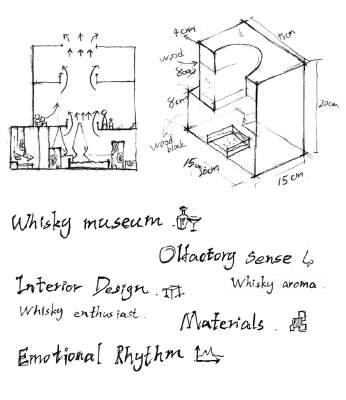 4cm
15cm
wood
8cm
20cm
wood
block
15cm
10cm
15cm
Whisky museum
Olfactory sense
Whisky aroma.
Interior Design.
Whisky enthusiast.
Materials.
Emotional Rhythm